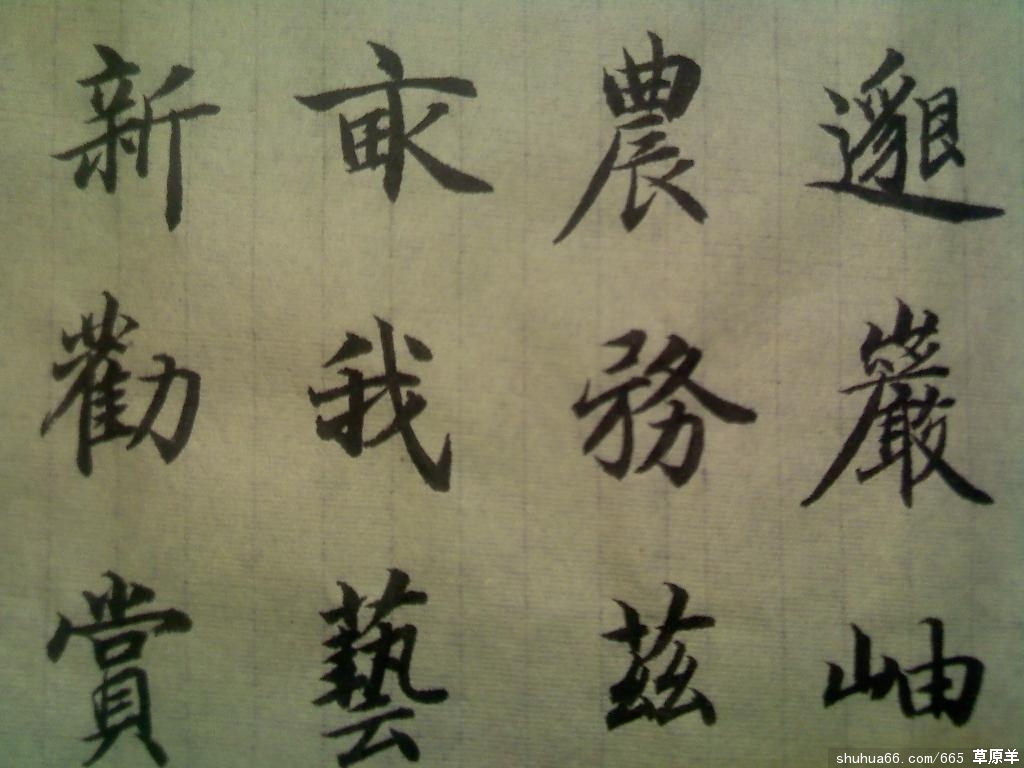 邈巖岫
農務茲
畝我藝
新勸賞
shuhua66.com/665 草原羊